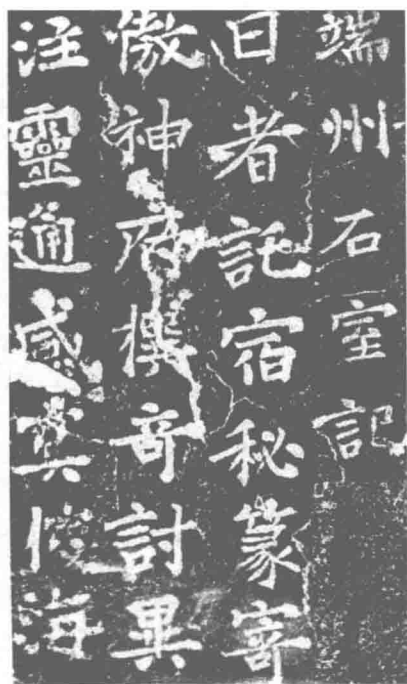 端州石室記
日者託宿秘篆寄
傲神府撰奇討異
注靈通感冥
海